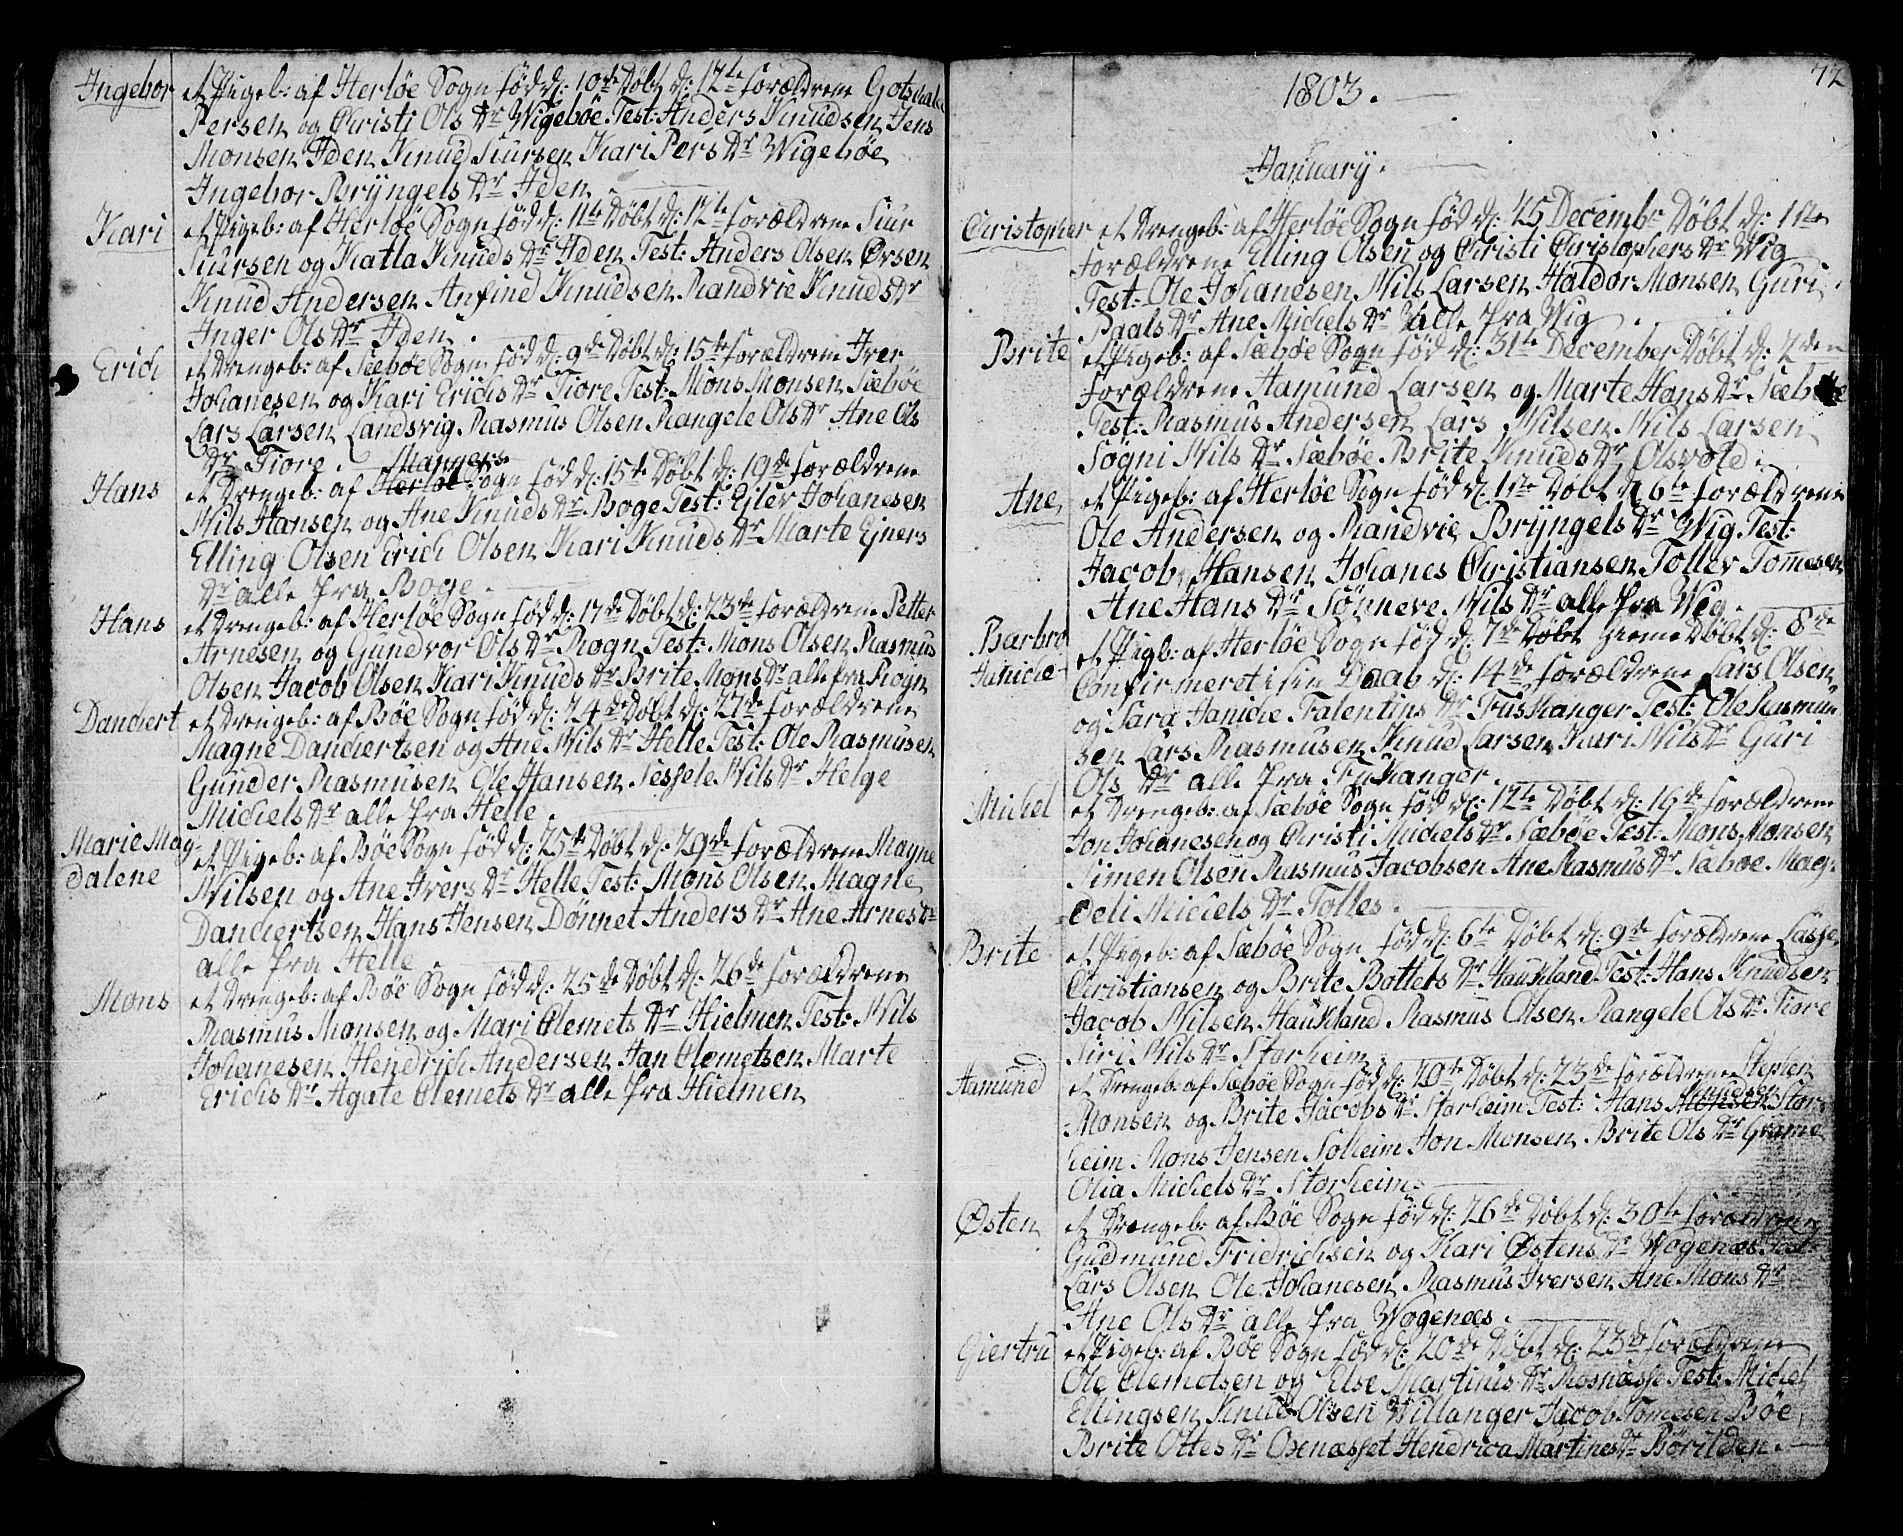 Ingebor et Pigeb: af Herløe Sogn fød d: 10de Døbt d: 12te forældrene Gotskalk
Persen og Christi Ols Dr Wigebøe Test: Anders Knudsen Jens
Monsen Iden Knud Siursen Kari Pers Dr Wigebøe
Ingebor Bryngels Dr Iden
Kari et Pigeb: af Herløe Sogn fød d: 11te Døbt d: 12te forældrene Siur
Siursen og Katla Knuds Dr Iden Test: Anders Olsen Ørsen
Knud Andersen Anfind Knudsen Randvie Knuds Dr
Inger Ols Dr Iden.
Erich et Drengeb: af Sæbøe Sogn fød d: 9de Døbt d: 15de forældrene Iver
Johanesen og Kari Erichs Dr Fiore Test: Mons Monsen Sæbøe
Lars Larsen Landsvig Rasmus Olsen Rangele Ols Dr Ane Ols
Dr Fiore. Mangers
Hans et Drengeb: af Herløe Sogn fød d: 15de Døbt d: 19de forældrene
Nils Hansen og Ane Knuds Dr Boge Test: Ejlev Johanesen
Elling Olsen Erich Olsen Kari Knuds Dr Marte Ejners
Dr alle fra Boge.
Hans et Drengeb: af Herløe Sogn fød d: 17de Døbt d: 23de forældrene Petter
Arnesen og Gundvor Ols Dr Rogn Test: Mons Olsen Rasmus
Olsen Jacob Olsen Kari Knuds Dr Brite Mons Dr alle fra Rogn
Danchert et Drengeb: af Bøe Sogn fød d: 24de Døbt d: 27de forældrene
Magne Danchertsen og Ane Nils Dr Helle Test: Ole Rasmusen
Gunder Rasmusen Ole Hansen Sessele Nils Dr Helge
Michels Dr alle fra Helle.
Marie Mag- et Pigeb: af Bøe Sogn fød d: 25de Døbt d: 29de forældrene Magne
dalene Nilsen og Ane Ivers Dr Helle Test: Mons Olsen Magne
Danchertsen Hans Jensen Dønnet Anders Dr Ane Arnes Dr
alle fra Helle.
Mons et Drengeb: af Bøe Sogn fød d: 25de Døbt d: 26de forældrene
Rasmus Monsen og Mari Clemets Dr Hielmen Test: Nils
Johanesen Hendrich Andersen Jan Clemetsen Marte
Erichs Dr Agate Clemets Dr alle fra Hielmen
1803.
January.
Christopher et Drengeb: af Herløe Sogn fød d: 25 Decembr Døbt d: 1ste
forældrene Elling Olsen og Christi Christophers Dr Wig
Test: Ole Johanesen Nils Larsen Haldor Monsen Guri
Paals Dr Ane Michels Dr alle fra Wig
Brite et Pigeb: af Sæbøe Sogn fød d: 31te December Døbt d: 2den
forældrene Aamund Larsen og Marte Hans Dr Sæbøe
Test: Rasmus Andersen Lars Nilsen Nils Larsen
Søgni Nils Dr Sæbøe Brite Knuds Dr Olsvold.
Ane et Pigeb: af Herløe Sogn fød d: 1ste Døbt d: 6te forældrene
Ole Andersen og Randvie Bryngels Dr Wig Test:
Jacob Hansen Johanes Christiansen Tollev Tomesen
Ane Hans Dr Sønneve Nils Dr alle fra Wig.
Barbro et Pigb: af Herløe Sogn fød d: 7de Døbt hieme Døbt d: 8de
Janiche Confirmerot i sin Daab d: 14de forældrene Lars Olsen
og Sara Janiche Falentins Dr Fushanger Test: Ole Rasmu
sen Lars Rasmusen Knud Larsen Kari Nils Dr Guri
Ols Dr alle fra Fushanger.
Michel et Drengeb: af Sæbøe Sogn fød d: 12te Døbt d: 16de forældrene
Jon Johanesen og Christi Michels Dr Sæbøe Test: Mons Monsen
Simen Olsen Rasmus Jacobsen Ane Rasmus Dr Sæbøe Mag-
deli Michels Dr Tolles.
Brite et Pigeb: af Sæbøe Sogn fød d: 6te Døbt d: 9de forældrene Lasse
Christiansen og Brite Bottels Dr Haukland Test: Hans Knudsen
Jacob Nilsen Haukland Rasmus Olsen Rangele Ols Dr Fiore
Siri Nils Dr Storheim
Aamund et Drengeb: af Sæbøe Sogn fød d: 20te Døbt d: 23de forældrene Stephen
Monsen og Brite Jacobs Dr Storheim Test: Hans Monsen Knudsen Stor-
heim Mons Jensen Solheim Jon Monsen Brite Ols Dr Grame
Olia Michels Dr Storheim.
Østen et Drengeb: af Bøe Sogn fød d: 26de Døbt d: 30te forældrene
Gudmund Fridrichsen og Kari Østens Dr Wogenæs Test:
Lars Olsen Ole Johanesen Rasmus Iversen Ane Mons Dr
Ane Ols Dr alle fra Wogenæs.
Giertru et Pigeb: af Bøe Sogn fød d: 20de Døbt d: 23de forældrene
Ole Clemetsen og Else Martinus Dr Rosnæsse Test: Michel
Ellingsen Knud Olsen Willanger Jacob Tomesen Bøe,
Brite Ottes Dr Oxenæsset Hendrica Martines Dr Børilden.